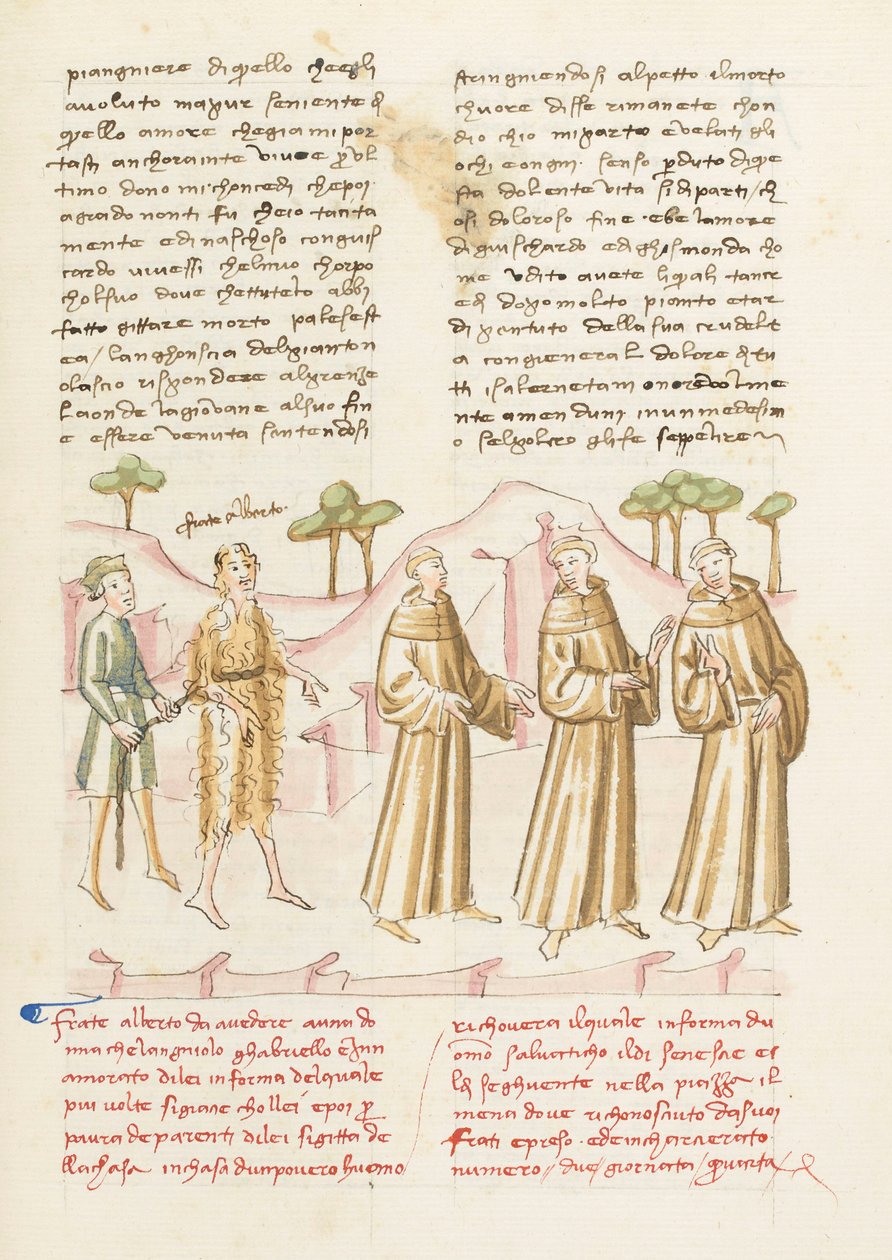 piangniere di quello che egli
avoluto ma pur se niente di
quello amore che gia mi por
tasti anchora in te vive per ul
timo dono mi choncedi che poi
a grado non ti fu che io tacita
mente e di naschoso con guis
cardo vivessi chel mio chorpo
chol suo dove che tu te lo abbi
fatto gittare morto palese st
ea / langhonscia del pianto n
o lascio rispondere al prenze
La onde la giovane al suo fin
e essere venuta sentendosi
stringniendosi al petto il morto
chuore disse rimanete chon
dio chio mi parto e velati gli
ochi e ongni senso perduto di que
sta dolente vita si diparti / ch
osi doloroso fine ebe lamore
di guischardo e di ghismonda cho
me udito avete li quali tancr
edi dopo molto pianto e tar
di pentuto della sua crudelt
a con gieneral dolore di tu
tti i salernetani onorevolme
nte amenduni in un medesim
o sepolcro gli fe seppelire
frate alberto
frate alberto da a vedere a una do
nna che langniolo ghabriello e inn
amorato di lei in forma del quale
piu volte si giace cho llei e poi per
paura de parenti di lei si gitta de
lla chasa in chasa dun povero huomo
richovera il quale in forma du
omo salvaticho il di
lo di seghuente nella piazza il
mena dove richonosciuto da suoi
frati e preso e de incharcierato
numero / due / giornata / quarta